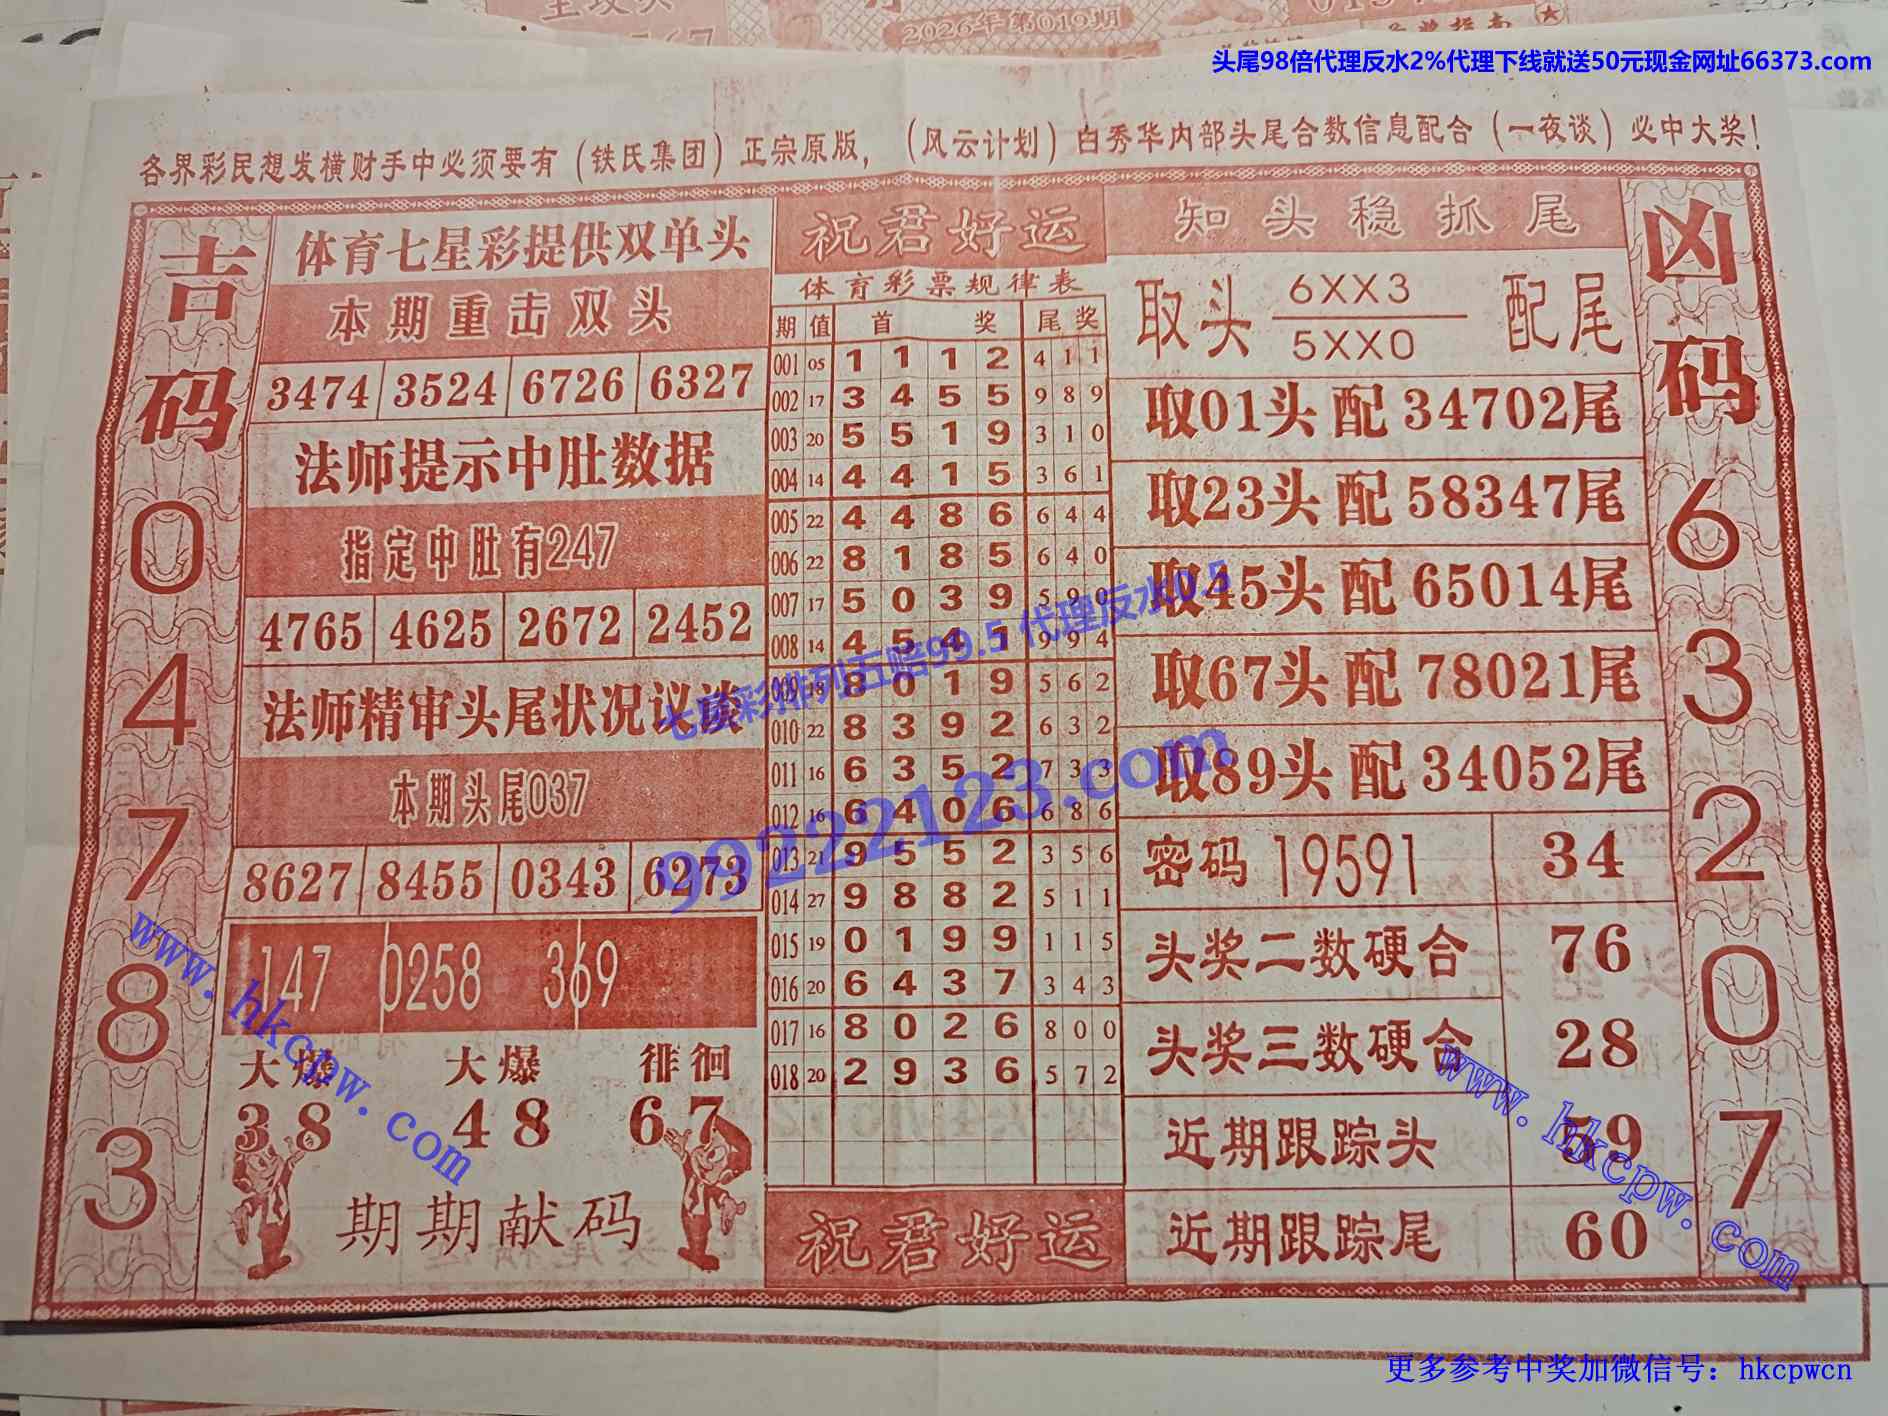 2026年 第019期
头尾98倍代理反水2%代理下线就送50元现金网址66373.com
各界彩民想发横财手中必须要有（铁氏集团）正宗原版，（风云计划）白秀华内部头尾合数信息配合（一夜谈）必中大奖！
吉码
0
4
7
8
3
体育七星彩提供双单头
本期重击双头
3474 3524 6726 6327
法师提示中肚数据
指定中肚有247
4765 4625 2672 2452
法师精审头尾状况议谈
本期头尾037
8627 8455 0343 6273
147 0258 369
大爆 大爆 徘徊
38 48 67
期期献码
祝君好运
体育彩票规律表
期 值 首 奖 尾 奖
001 05 1 1 1 2 4 1 1
002 17 3 4 5 5 9 8 9
003 20 5 5 1 9 3 1 0
004 14 4 4 1 5 3 6 1
005 22 4 4 8 6 6 4 4
006 22 8 1 8 5 6 4 0
007 17 5 0 3 9 5 9 0
008 14 4 5 4 1 9 9 4
009 18 8 0 1 9 5 6 2
010 22 8 3 9 2 6 3 2
011 16 6 3 5 2 7 3 3
012 16 6 4 0 6 6 8 6
013 21 9 5 5 2 3 5 6
014 27 9 8 8 2 5 1 1
015 19 0 1 9 9 1 1 5
016 20 6 4 3 7 3 4 3
017 16 8 0 2 6 8 0 0
018 20 2 9 3 6 5 7 2
祝君好运
知头稳抓尾
取头 6XX3 配尾
5XX0
取01头 配 34702尾
取23头 配 58347尾
取45头 配 65014尾
取67头 配 78021尾
取89头 配 34052尾
密码 19591 34
头奖二数硬合 76
头奖三数硬合 28
近期跟踪头 59
近期跟踪尾 60
凶码
6
3
2
0
7
七星彩排列五赔99.5 代理反水0.5
99222123.com
www.hkcpw.com
www.hkcpw.com
更多参考中奖加微信号：hkcpwcn